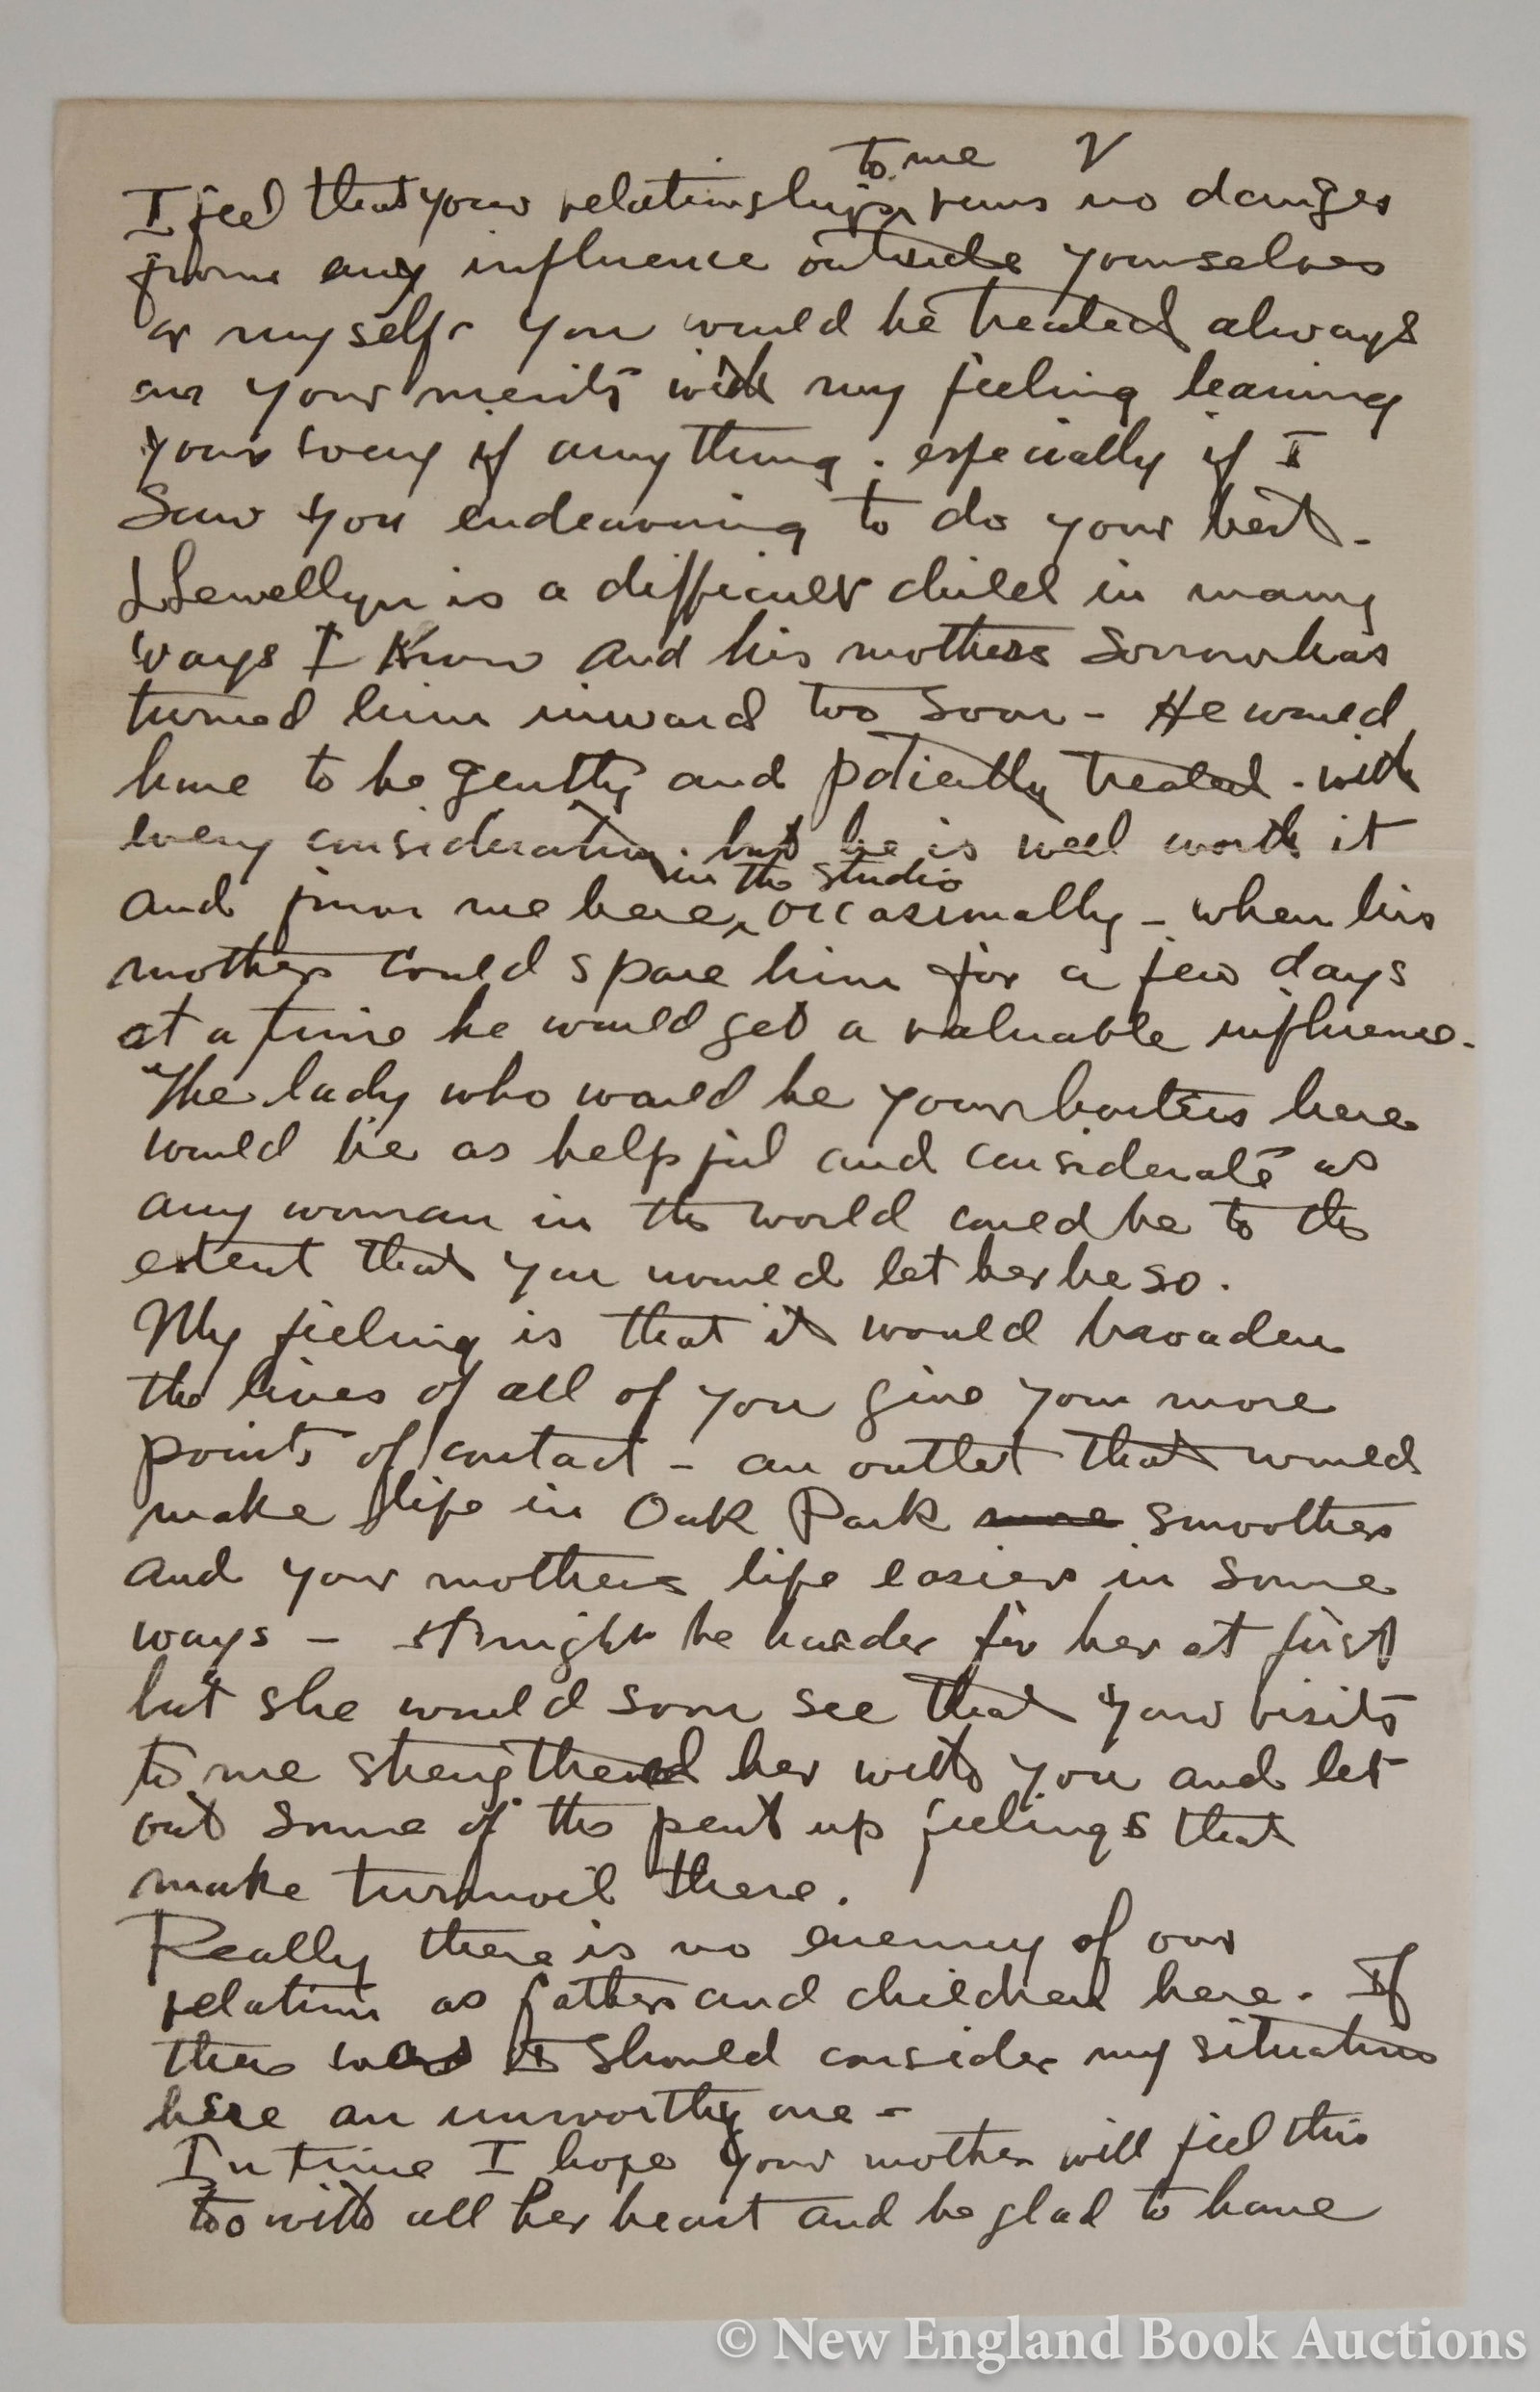 V
I feel that your relationship to me runs no danger
from any influence outside yourselves
or myself. You would be treated always
on your merits with my feeling leaning
your way if anything. especially if I
saw you endeavoring to do your best -
Llewellyn is a difficult child in many
ways I know and his mothers sorrow has
turned him inward too soon - He would
have to be gently and patiently treated - with
every consideration. but he is well worth it
and from me here in the studio occasionally - when his
mother could spare him for a few days
at a time he would get a valuable influence.
The lady who would be your hostess here
would be as helpful and considerate as
any woman in the world could be to the
extent that you would let her be so.
My feeling is that it would broaden
the lives of all of you give you more
points of contact - an outlet that would
make life in Oak Park more smoother
and your mothers life easier in some
ways - It might be harder for her at first
but she would soon see that your visits
to me strengthened her with you and let
out some of the pent up feelings that
make turmoil there.
Really there is no enemy of our
relation as father and children here. If
there were I should consider my situation
here an unworthy one -
In time I hope your mother will feel this
too with all her heart and be glad to have
© New England Book Auctions